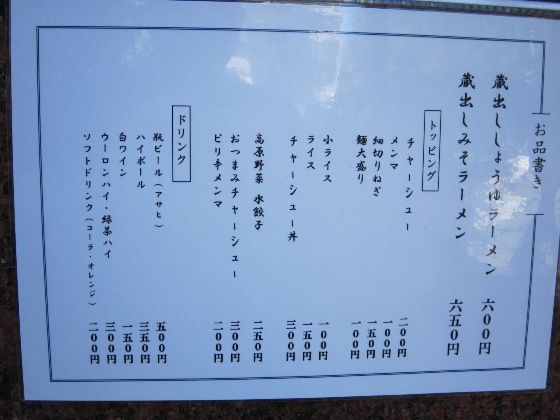 お品書き
蔵出ししょうゆラーメン 六〇〇円
蔵出しみそラーメン 六五〇円
トッピング
チャーシュー 二〇〇円
メンマ 一〇〇円
細切りねぎ 一五〇円
麺大盛り 一〇〇円
小ライス 一〇〇円
ライス 一五〇円
チャーシュー丼 三〇〇円
高原野菜 水餃子 二五〇円
おつまみチャーシュー 三〇〇円
ピリ辛メンマ 二〇〇円
ドリンク
瓶ビール(アサヒ) 五〇〇円
ハイボール 三五〇円
白ワイン 一五〇円
ウーロンハイ・緑茶ハイ 三〇〇円
ソフトドリンク(コーラ・オレンジ) 二〇〇円